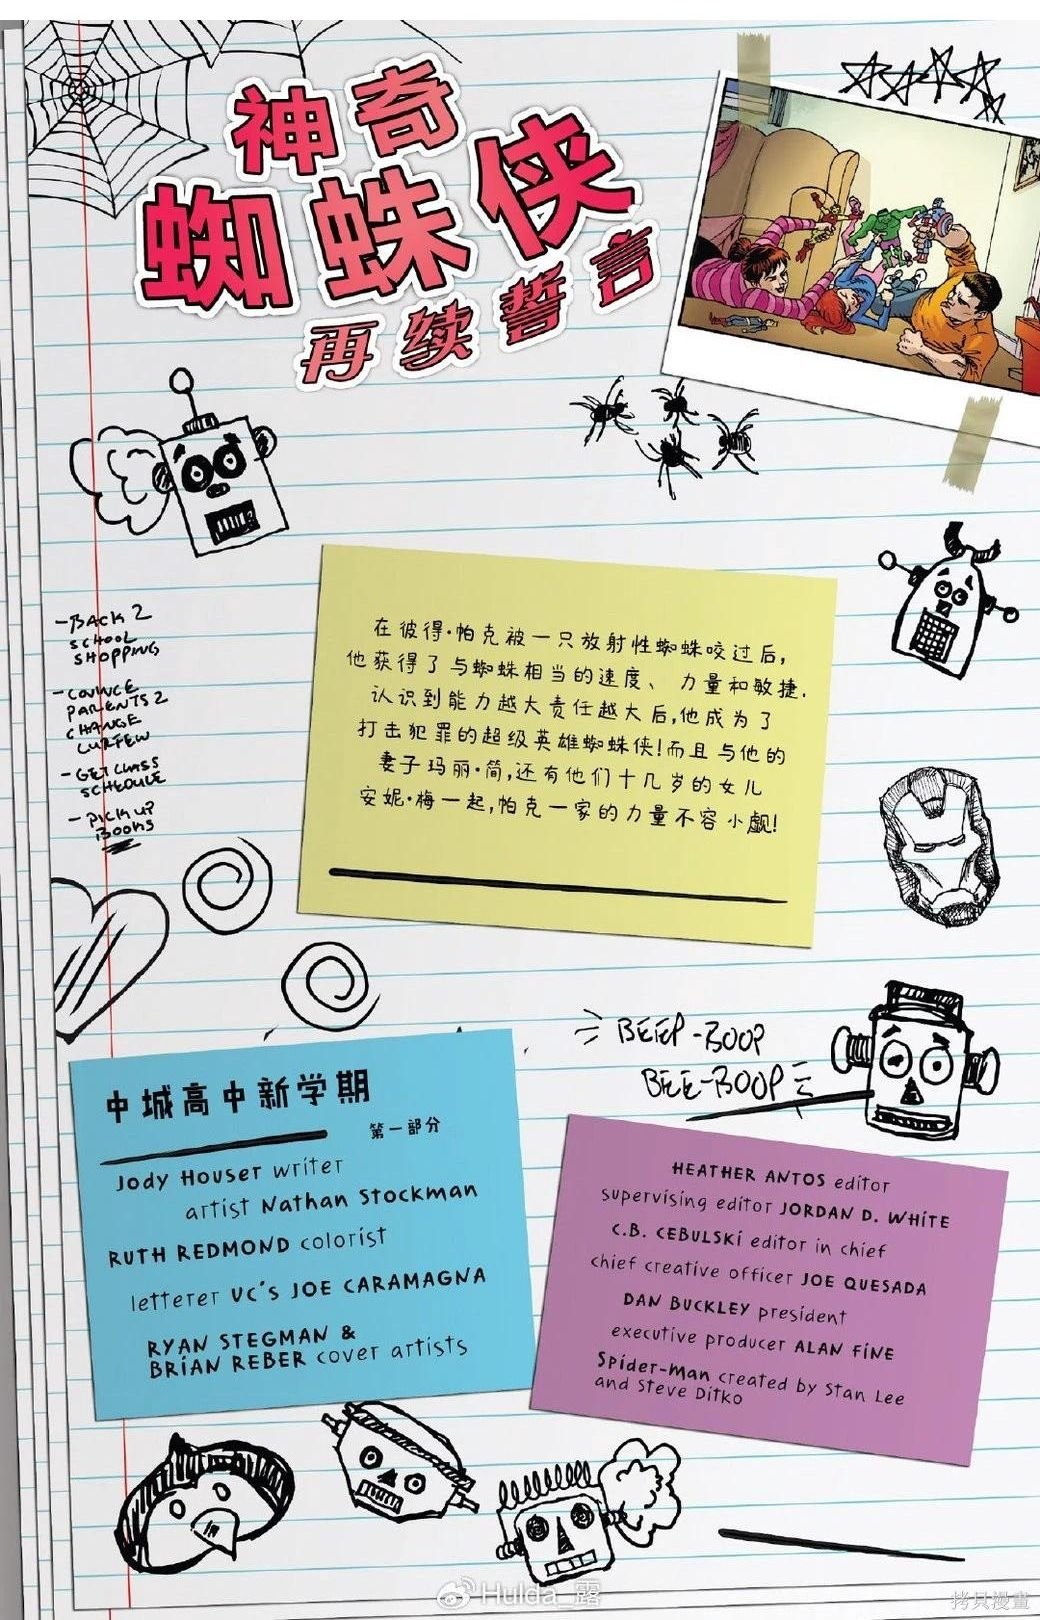 神奇
蜘蛛侠
再续誓言
-BACK 2
SCHOOL
SHOPPING
-CONVINCE
PARENTS 2
CHANGE
CURFEW
-GET CLASS
SCHEDULE
-PICK UP
BOOKS
在彼得·帕克被一只放射性蜘蛛咬过后,
他获得了与蜘蛛相当的速度、力量和敏捷.
认识到能力越大责任越大后,他成为了
打击犯罪的超级英雄蜘蛛侠!而且与他的
妻子玛丽·简,还有他们十几岁的女儿
安妮·梅一起,帕克一家的力量不容小觑!
BEEP-BOOP
BEE-BOOP
中城高中新学期
第一部分
Jody Houser writer
artist Nathan Stockman
RUTH REDMOND colorist
letterer VC's JOE CARAMAGNA
RYAN STEGMAN &
BRIAN REBER cover artists
HEATHER ANTOS editor
supervising editor JORDAN D. WHITE
C.B. CEBULSKI editor in chief
chief creative officer JOE QUESADA
DAN BUCKLEY president
executive producer ALAN FINE
Spider-Man created by Stan Lee
and Steve Ditko
Hulda_露
拷贝漫畫